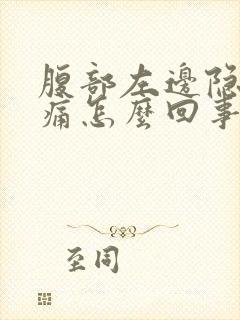 腹部左邊隐
痛怎麽回事
至同